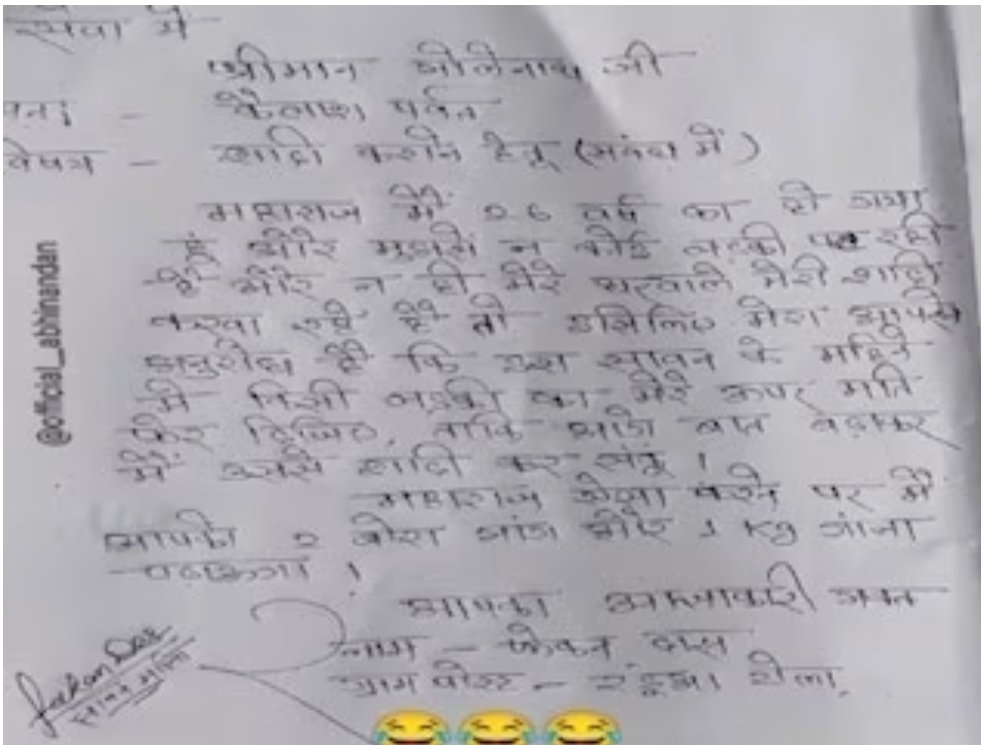 सेवा में
श्रीमान भोलेनाथ जी
पता - कैलाश पर्वत
विषय - शादी करने हेतू (संबंध में)
महाराज मैं 26 वर्ष का हो गया
हुं और मुझसे न कोई लड़की पट रही
है और न ही मेरे घरवाले मेरी शादी
करवा रहे है तो इसलिए मेरा आपसे
अनुरोध है कि इस सावन के महिने
में किसी लड़की का मेरे ऊपर मति
फेर दिजिए, ताकि आगे बात बढ़ाकर
मैं उससे शादी कर सकूं ।
महाराज ऐसा करने पर मैं
आपको 2 बोरा भांग और 1 Kg गांजा
चढ़ाऊंगा ।
आपका आज्ञाकारी भक्त
नाम - फेकन दास
ग्राम पोस्ट - रडूआ टोला
@official_abhinandan